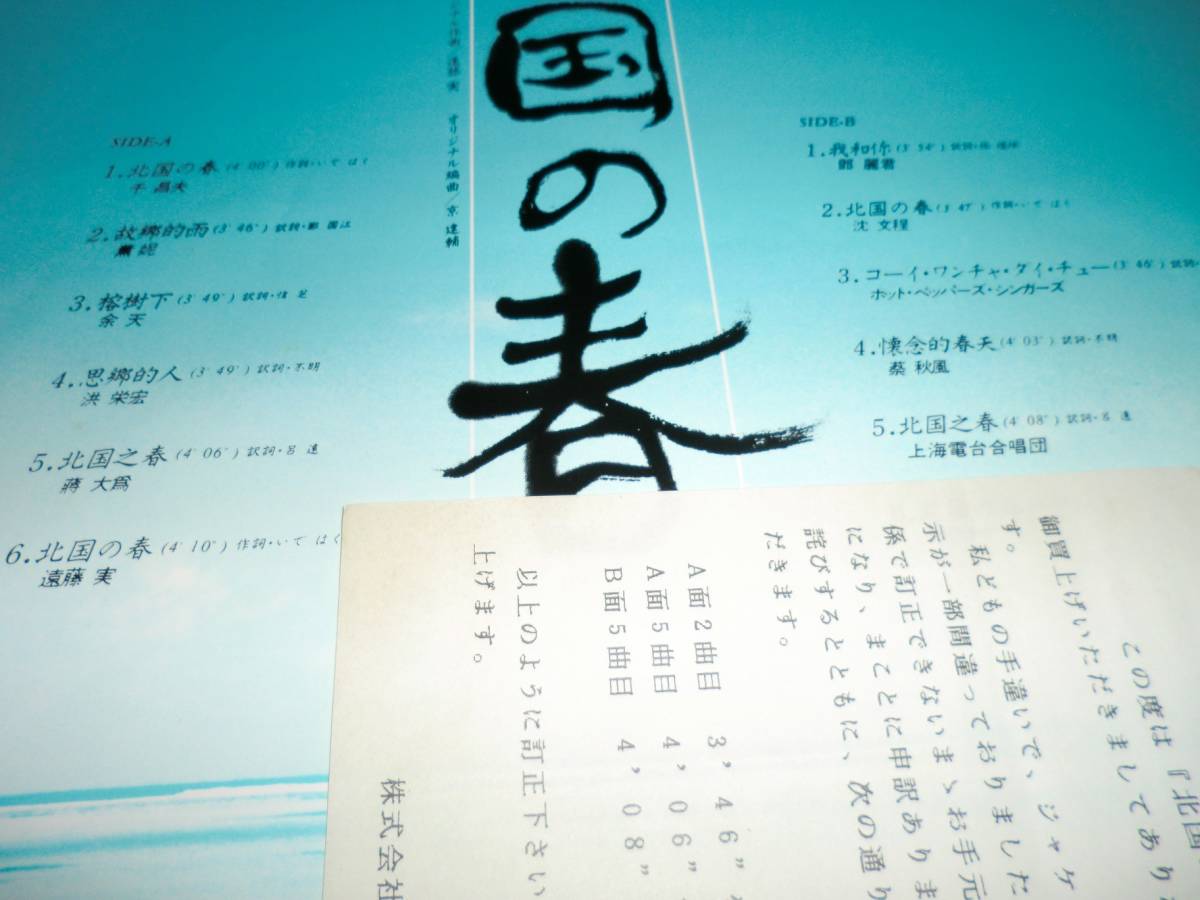 国の春
オリジナル編曲／京 建輔
SIDE-A
1.北国の春(4´00˝)作詞・いで はく
千 昌夫
2.故郷的雨(3´46˝)訳詞・鄭 国江
薰 妮
3.榕樹下(3´49˝)訳詞・慎 芝
余 天
4.思郷的人(3´49˝)訳詞・不明
洪 栄宏
5.北国之春(4´06˝)訳詞・呂 遠
蔣 大爲
6.北国の春(4´10˝)作詞・いで はく
遠藤 実
SIDE-B
1.我和你(3´54˝)訳詞・
鄧 麗君
2.北国の春(3´47˝)作詞・いで はく
沈 文程
3.コーイ・ワンチャ・ダイ・チュー(3´46˝)訳詞・
ホット・ペッパーズ・シンガーズ
4.懐念的春天(4´03˝)訳詞・不明
蔡 秋風
5.北国之春(4´08˝)訳詞・呂 遠
上海電台合唱団
この度は『北国
御買上げいただきましてあり
す。
私どもの手違いで、ジャケ
示が一部間違っておりました
係で訂正できないまゝお手元
になり、まことに申訳ありま
詫びするとともに、次の通り
だきます。
A面2曲目 3,46”
A面5曲目 4,06”
B面5曲目 4,08”
以上のように訂正下さい
上げます。
株式会社